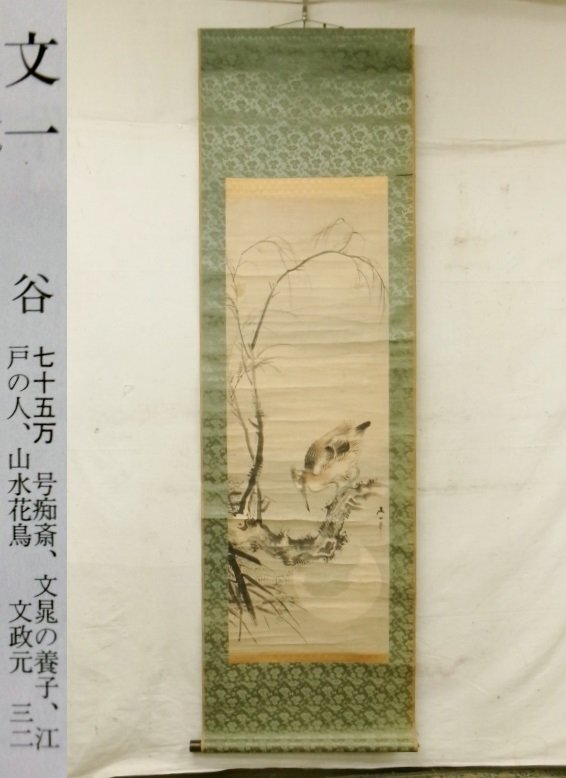 文一
谷
七十五万 号痴斎、文晁の養子、江
戸の人、山水花鳥 文政元 三二